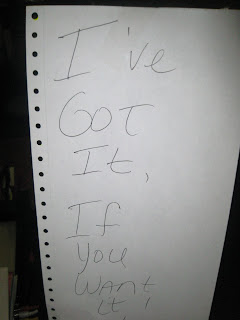 I've
GOT
It,
If
you
Want
it!